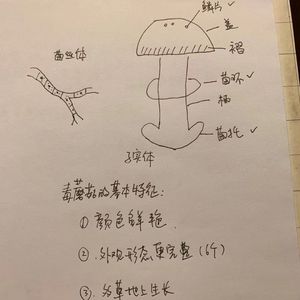 鳞片 ✓
盖
褶
菌丝体
菌环 ✓
柄
菌托 ✓
子实体
毒蘑菇的基本特征:
① 颜色鲜艳
② 外观形态更完整 (6个)
③ 为草地上生长